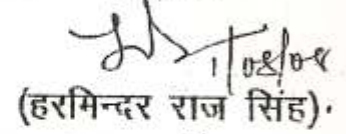 1/08/08
(हरमिन्दर राज सिंह).